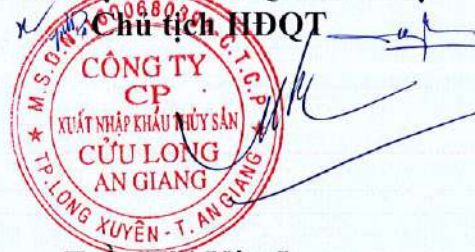 Chủ tịch HĐQT
M.S.D.N:
C.T.C.P
CÔNG TY
CP
XUẤT NHẬP KHẨU THỦY SẢN
CỬU LONG
AN GIANG
TP.LONG XUYÊN - T. AN GIANG